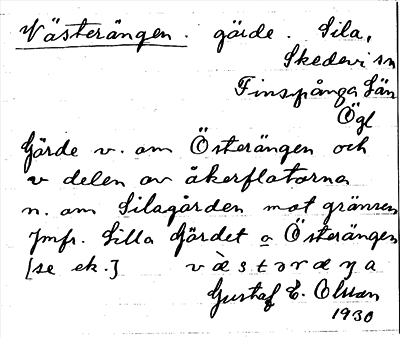 Västerängen. gärde. Sila,
Skedevi sn
Finspånga Län
Ögl
Gärde v. om Österängen och
v delen av åkerflatorna
n. om Silagården mot gränsen
Jmfr. Lilla Gärdet o Österängen
[se ek.] v ὰ s t ə r æ ŋ a
Gustaf E. Olsson
1930